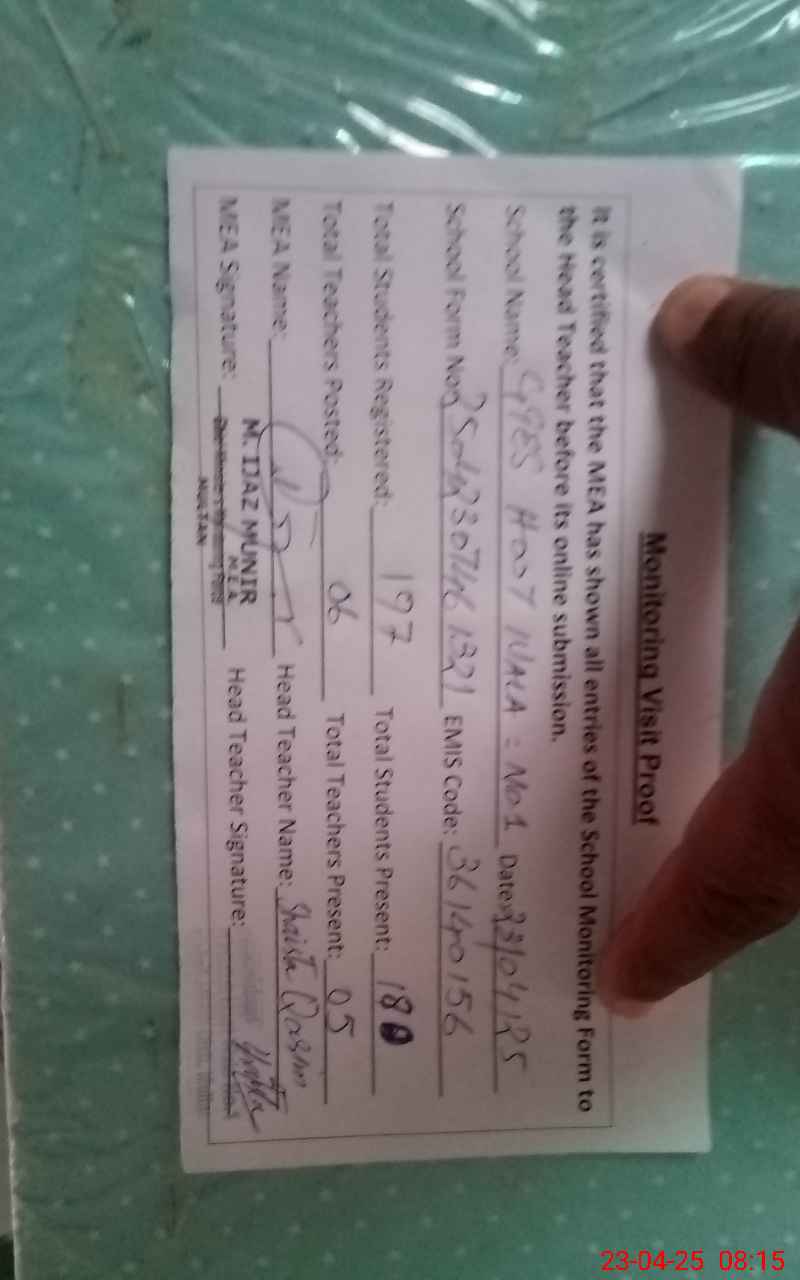 Monitoring Visit Proof
It is certified that the MEA has shown all entries of the School Monitoring Form to
the Head Teacher before its online submission.
School Name: GGES HOOT WALA = No1 Date: 23/04/25
School Form No: EMIS Code: 36140156
Total Students Registered: 197 Total Students Present: 180
Total Teachers Posted: 06 Total Teachers Present: 05
MEA Name: Head Teacher Name: Shaista Qasim
MEA Signature: Head Teacher Signature:
M. IJAZ MUNIR
M E A
MULTAN
23-04-25 08:15